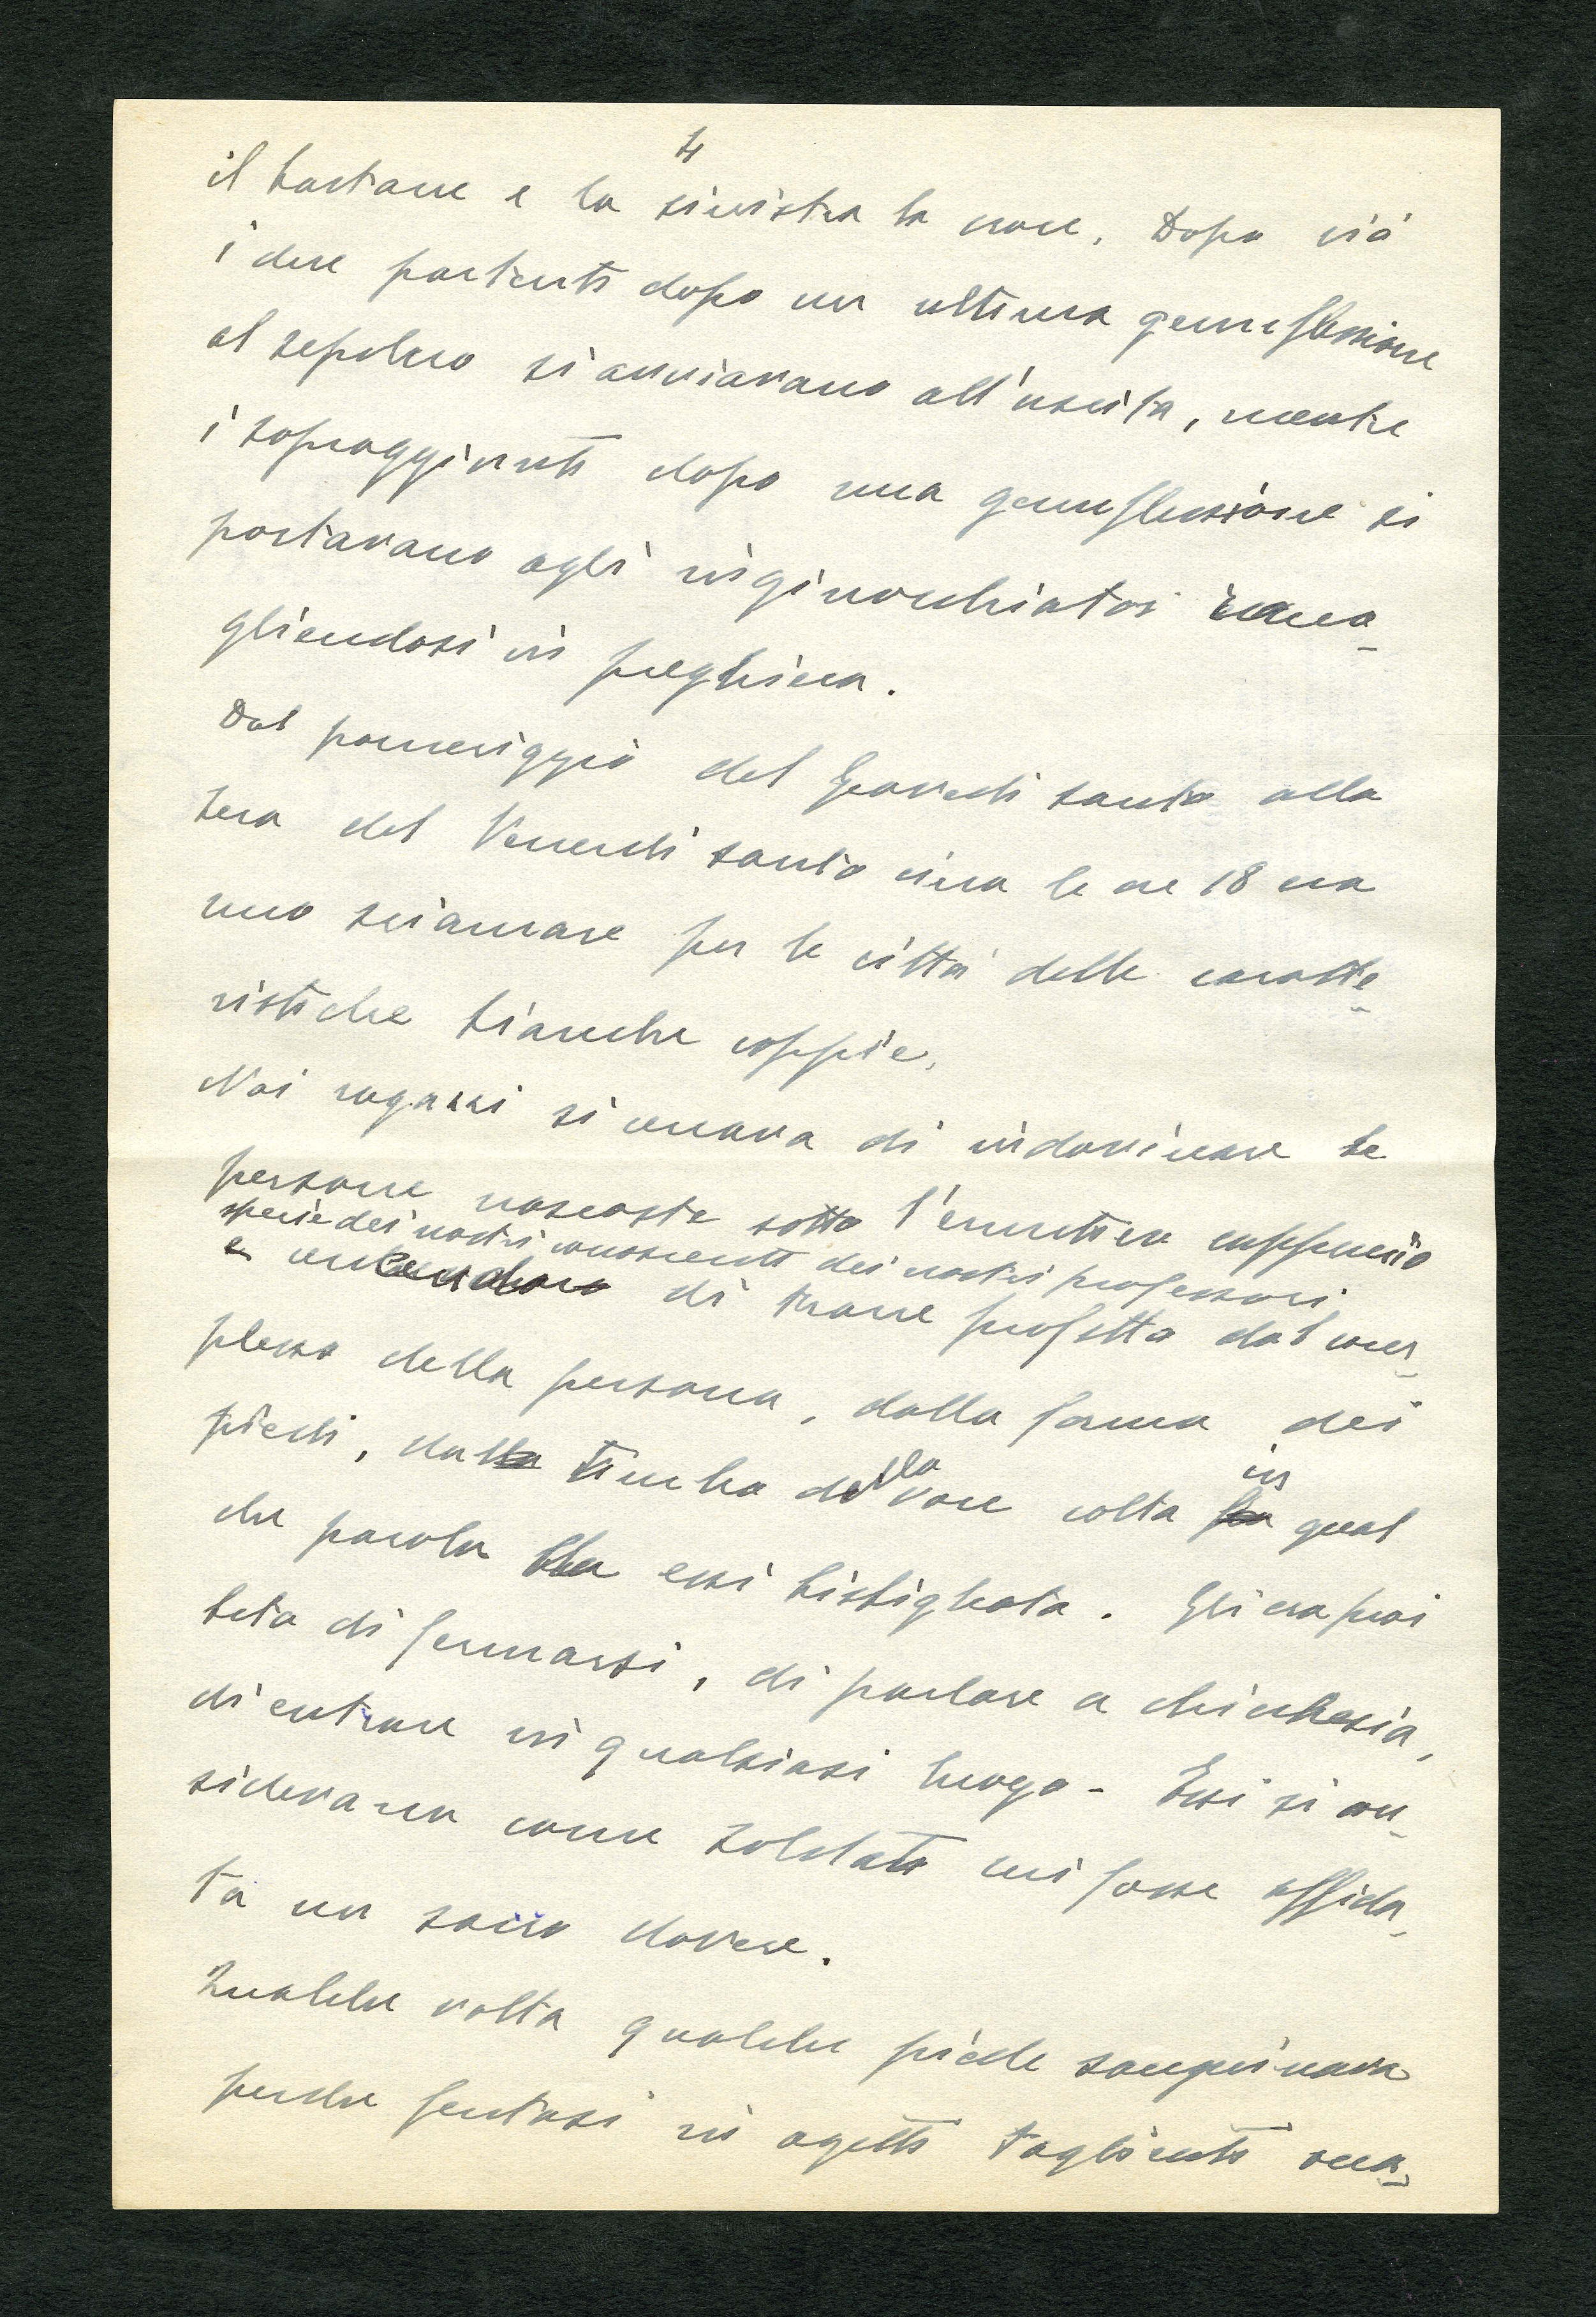 4
il bastone e la sinistra la croce. Dopo ciò
i due partenti dopo un ultima genuflessione
al sepolcro si avviavano all'uscita, mentre
i sopraggiunti dopo una genuflessione si
portavano agli inginocchiatoi racco-
gliendosi in preghiera.
Dal pomeriggio del Giovedì santo alla
sera del Venerdì santo circa le ore 18 era
uno sciamare per le città delle caratte-
ristiche bianche coppie.
Noi ragazzi si cercava di indovinare le
persone nascoste sotto l'ermetico cappuccio
specie dei nostri conoscenti dei nostri professori
e cercando di trarre profitto dal com-
plesso della persona, dalla forma dei
piedi, dal timbro della voce colta in qual
che parola da essi bisbigliata. Gli era proi
bito di fermarsi, di parlare a chicchesia,
di entrare in qualsiasi luogo - Essi si con-
sideravan come soldati cui fosse affida-
to un sacro dovere.
Qualche volta qualche piede sanguinava
perche feritosi in ogetti taglienti